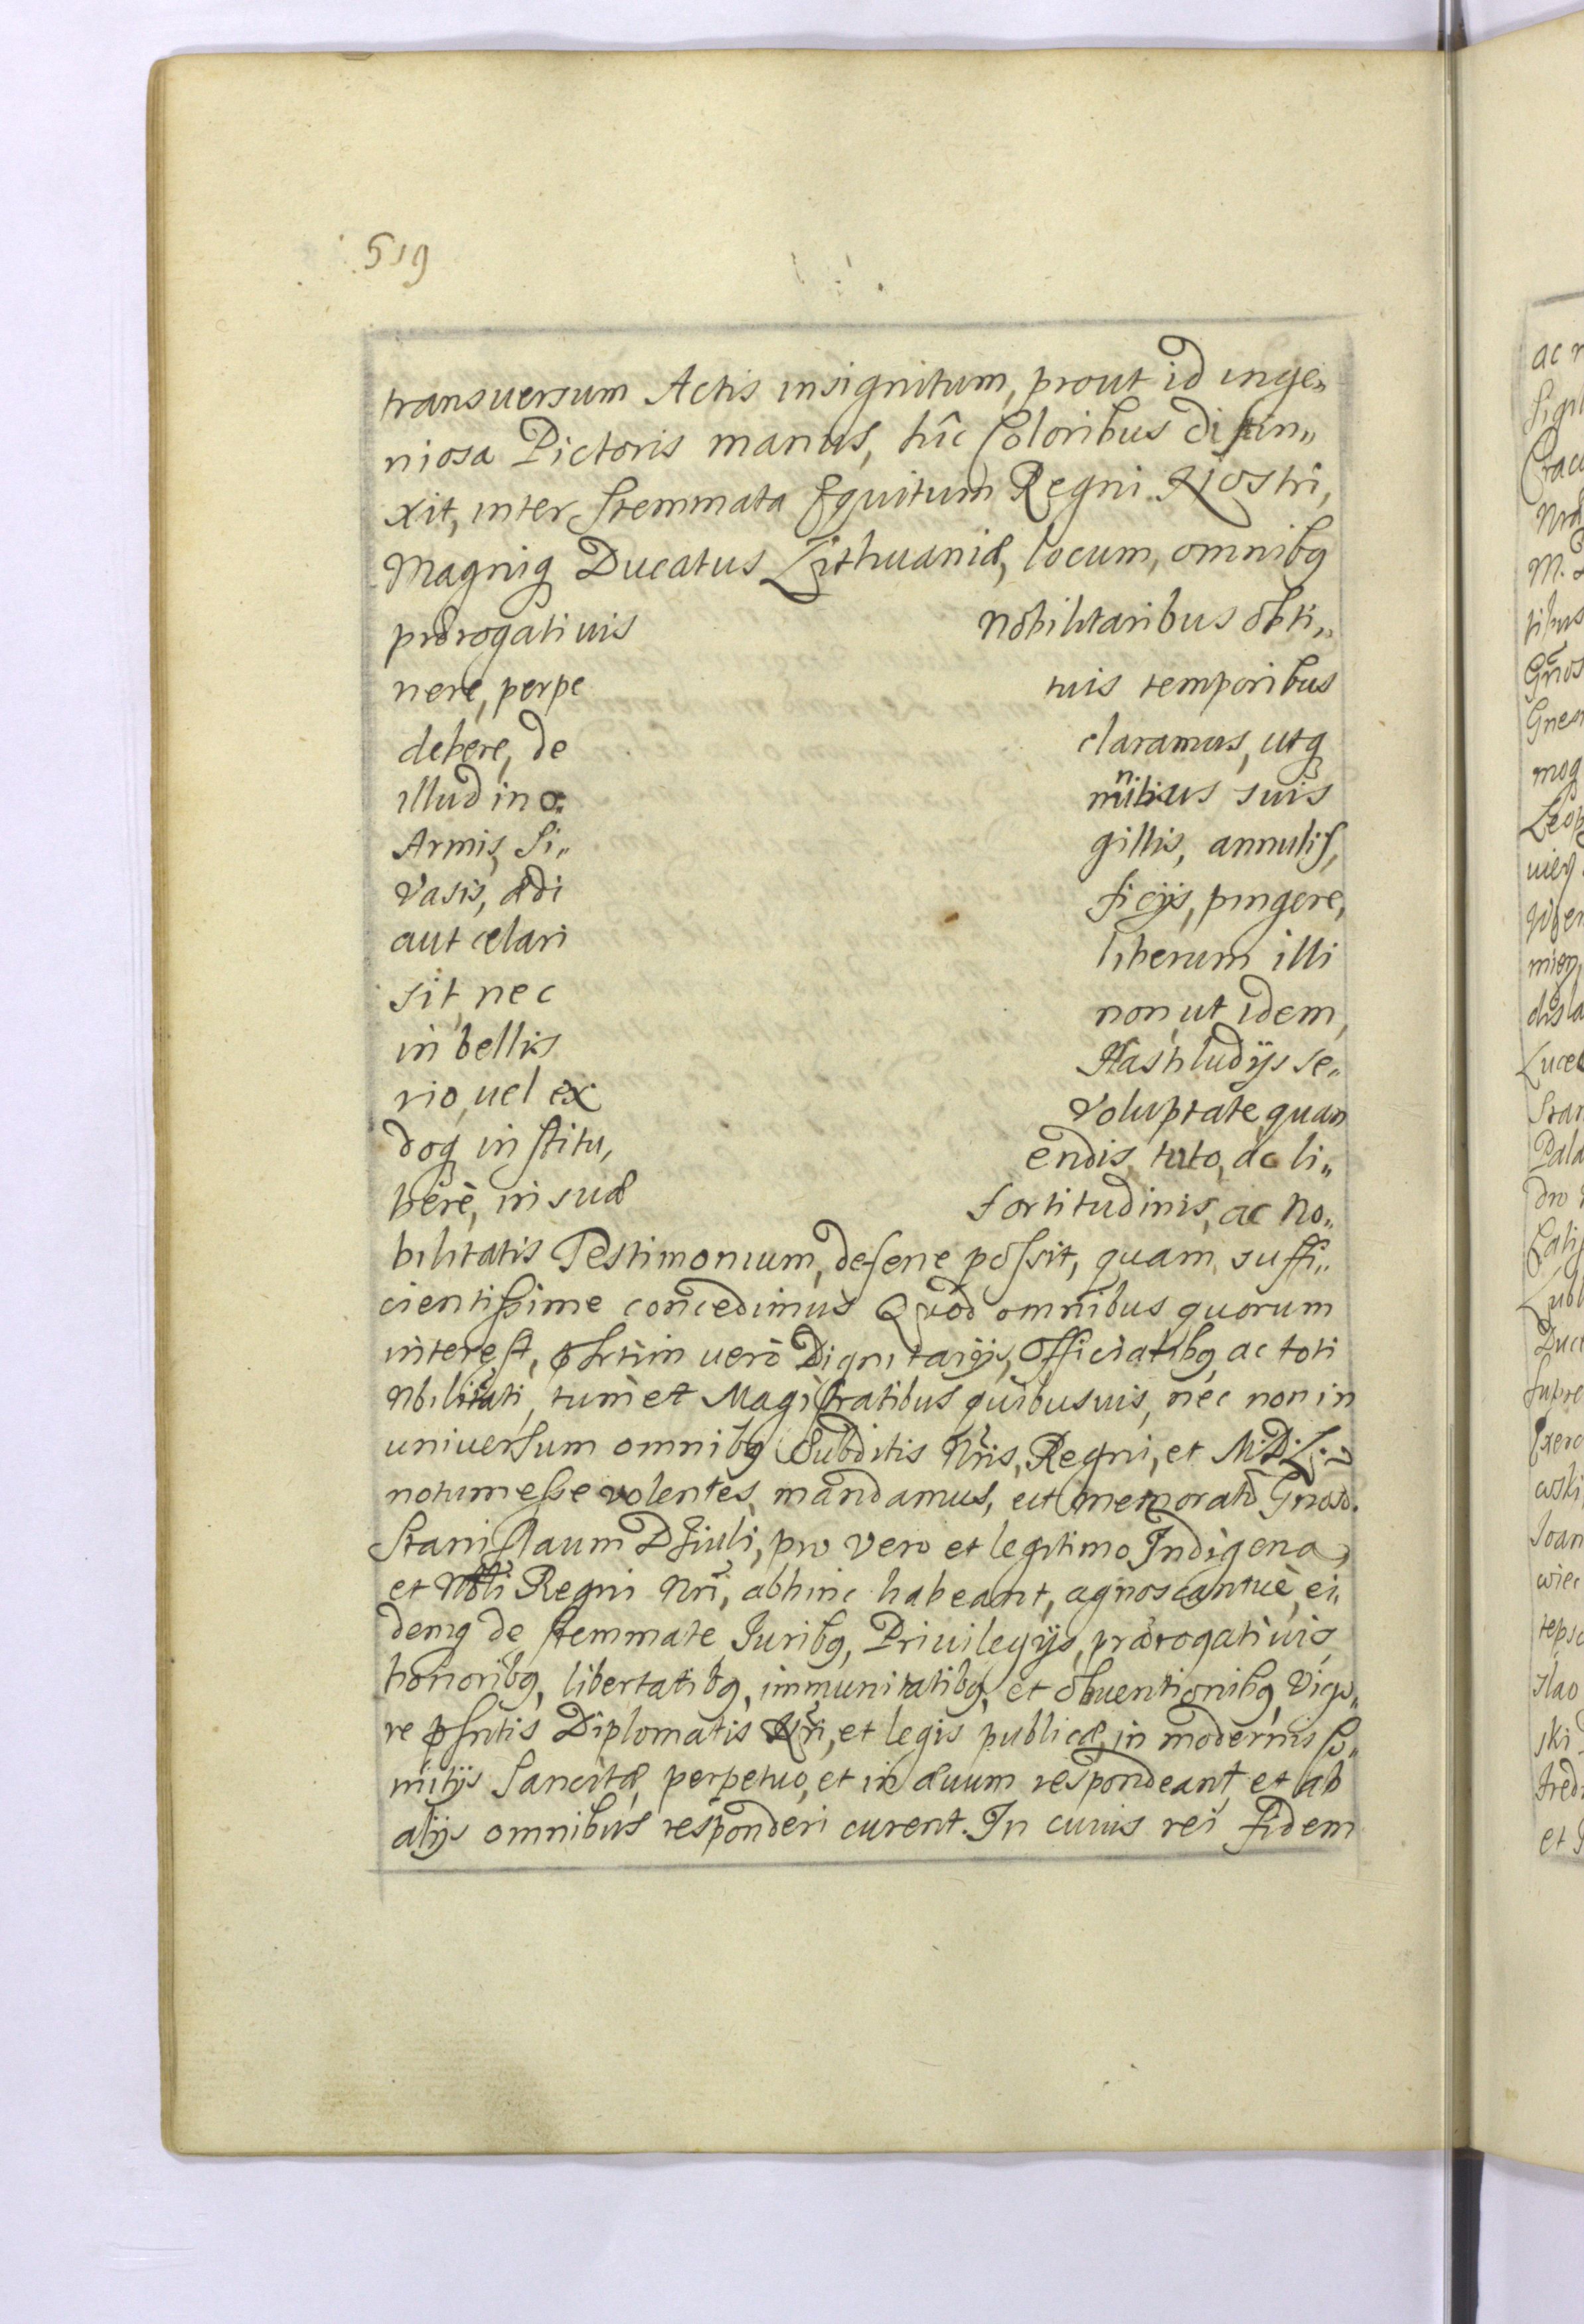 519
transuersum Actis insignitum, prout id inge„
niosa Pictoris manus, hîc Coloribus distin„
xit, inter Stemmata Equitum Regni Nostri,
Magniq Ducatus Lithuaniæ, locum, omnibq
prærogatiuis nobilitaribus obti„
nere, perpe tuis temporibus
debere, de claramus, utq
illud in o: mnibus suis
Armis, Si„ gillis, annulis,
Vasis, ædi ficijs, pingere,
aut celari liberum illi
sit, nec non, ut idem,
in bellis Hastiludijs se„
rio, uel ex voluptate quan
doq institu, endis, tuto, ac li„
berè, in suæ fortitudinis, ac No„
bilitatis Testimonium, deferre possit, quam suffi„
cientissime concedimus Quod omnibus quorum
interest, pñsertim uerò Dignitarijs, Officialibq, ac toti
Nobilitati, tum et Magistratibus quibusuis, nec non in
uniuersum omnibq Subditis Nris, Regni, et M.D.L.
notum esse volentes, mandamus, ut memoratũ Gnosũ.
Stanislaum Dziuli, pro vero et legitimo Indigena,
et Nobli Regni Nri, abhinc habeant, agnoscantuè, ei„
demq de stemmate, Iuribq, Priuilegijs, prærogatiuis,
honoribq, libertatibq, immunitatibq, et obuentionibq, Vigo„
re pñsntis Diplomatis Nri, et legis publicæ, in modernis Co„
mitijs Sancitæ, perpetuo, et in æuum respondeant, et ab
alijs omnibus responderi curent. In cuius rei fidem